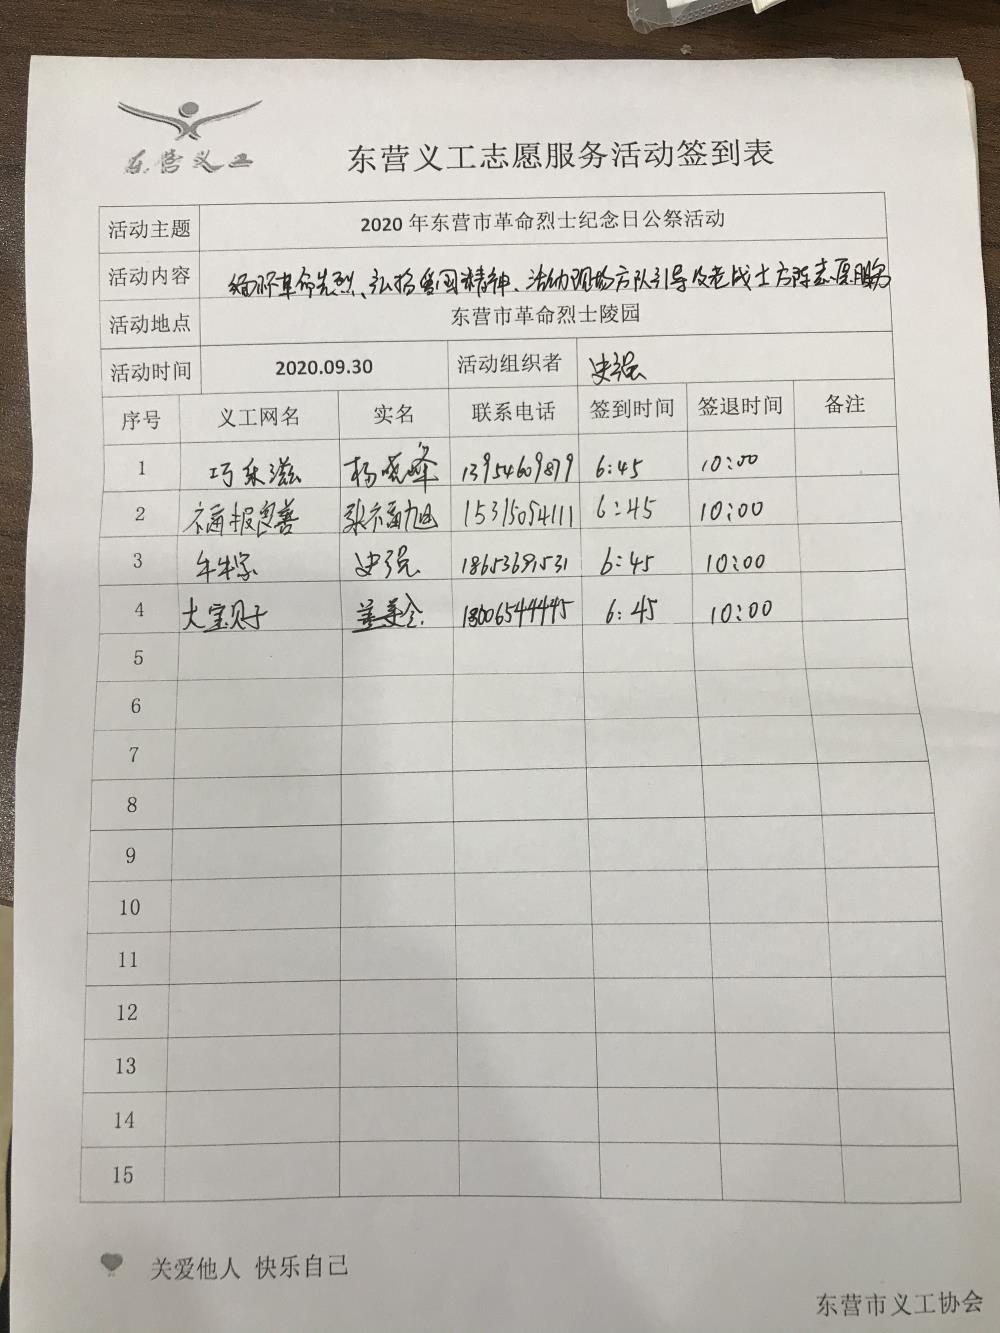 东营义工
东营义工志愿服务活动签到表
活动主题 2020年东营市革命烈士纪念日公祭活动
活动内容 缅怀革命先烈、弘扬爱国精神、活动现场方队引导及老战士方阵志愿服务
活动地点 东营市革命烈士陵园
活动时间 2020.09.30 活动组织者 史强
序号 义工网名 实名 联系电话 签到时间 签退时间 备注
1 巧乐滋 杨晓峰 13954609879 6:45 10:00
2 福报良善 张福旭 15315054111 6:45 10:00
3 史强 18653691531 6:45 10:00
4 大宝贝子 18006544445 6:45 10:00
5
6
7
8
9
10
11
12
13
14
15
关爱他人 快乐自己
东营市义工协会